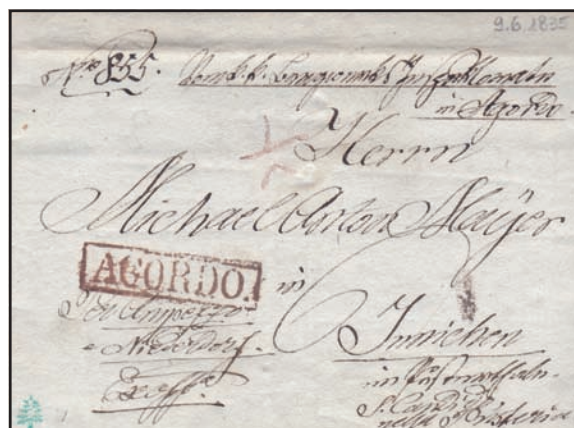 9.6.1835
Nro 855. Vom k. k. Bergwerks Inspektorate
in Agordo.
Herrn
Michael Anton Mayer
AGORDO.
in
Per Ampezzo
e Niederdorf.
Innichen
im Pusterthale.
S. Candido
nella Pusteria